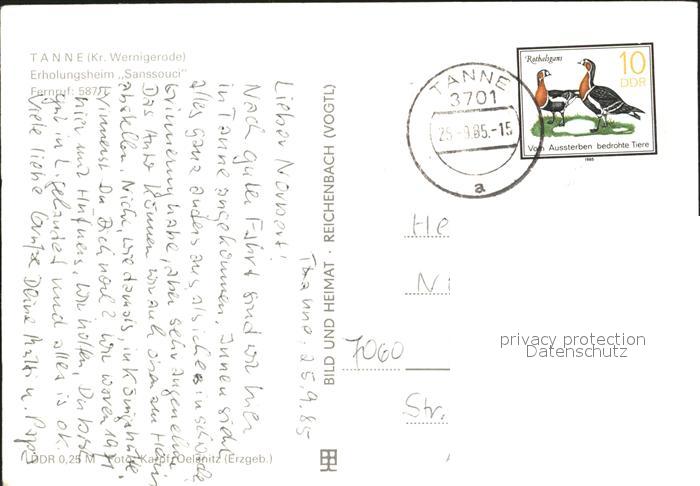 TANNE (Kr. Wernigerode)
Erholungsheim „Sanssouci"
Fernruf: 587/
Rothalsgans
10
DDR
Vom Aussterben bedrohte Tiere
1985
TANNE
3701
25.-9.85.-15
a
Tanne, 25.9.85
Lieber Norbert!
Nach guter Fahrt sind wir hier
in Tanne angekommen. Innen sieht
alles ganz anders aus als ich es in schwacher
Erinnerung habe, aber sehr angenehm.
Das Auto können wir auch oben am Heim
abstellen. Nicht, wie damals, in Königshütte.
Erinnerst Du Dich noch? Wir waren 1971
hier mit Hüfners. Wir hoffen, Du bist
gut in L. gelandet und alles ist ok.
Viele liebe Grüße Deine Mutti u. Papa
BILD UND HEIMAT · REICHENBACH (VOGTL)
He
Ni
7060
Str.
privacy protection
Datenschutz
DDR 0,25 M Foto: Karpf, Oelsnitz (Erzgeb.)